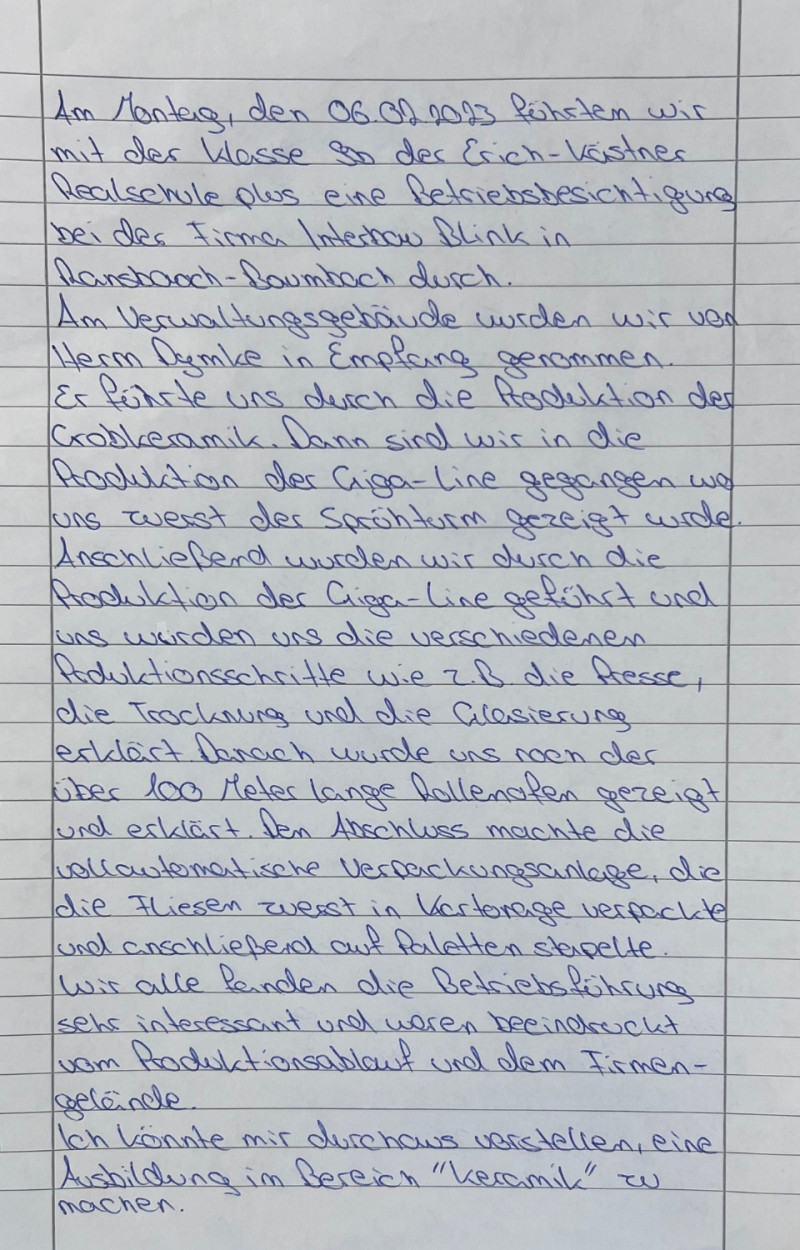 Am Montag, den 06.02.2023 führten wir
mit der Klasse der Erich-Kästner
Realschule plus eine Betriebsbesichtigung
bei der Firma Interbau Blink in
Ransbach-Baumbach durch.
Am Verwaltungsgebäude wurden wir von
Herrn Dymke in Empfang genommen.
Er führte uns durch die Produktion der
Grobkeramik. Dann sind wir in die
Produktion der Giga-Line gegangen wo
uns zuerst der Sprühturm gezeigt wurde.
Anschließend wurden wir durch die
Produktion der Giga-Line geführt und
uns wurden uns die verschiedenen
Produktionsschritte wie z.B. die Presse,
die Trocknung und die Glasierung
erklärt. Danach wurde uns noch der
über 100 Meter lange Rollenofen gezeigt
und erklärt. Den Abschluss machte die
vollautomatische Verpackungsanlage, die
die Fliesen zuerst in Kartonage verpackte
und anschließend auf Paletten stapelte.
Wir alle fanden die Betriebsführung
sehr interessant und waren beeindruckt
vom Produktionsablauf und dem Firmen-
gelände.
Ich könnte mir durchaus vorstellen, eine
Ausbildung im Bereich "Keramik" zu
machen.